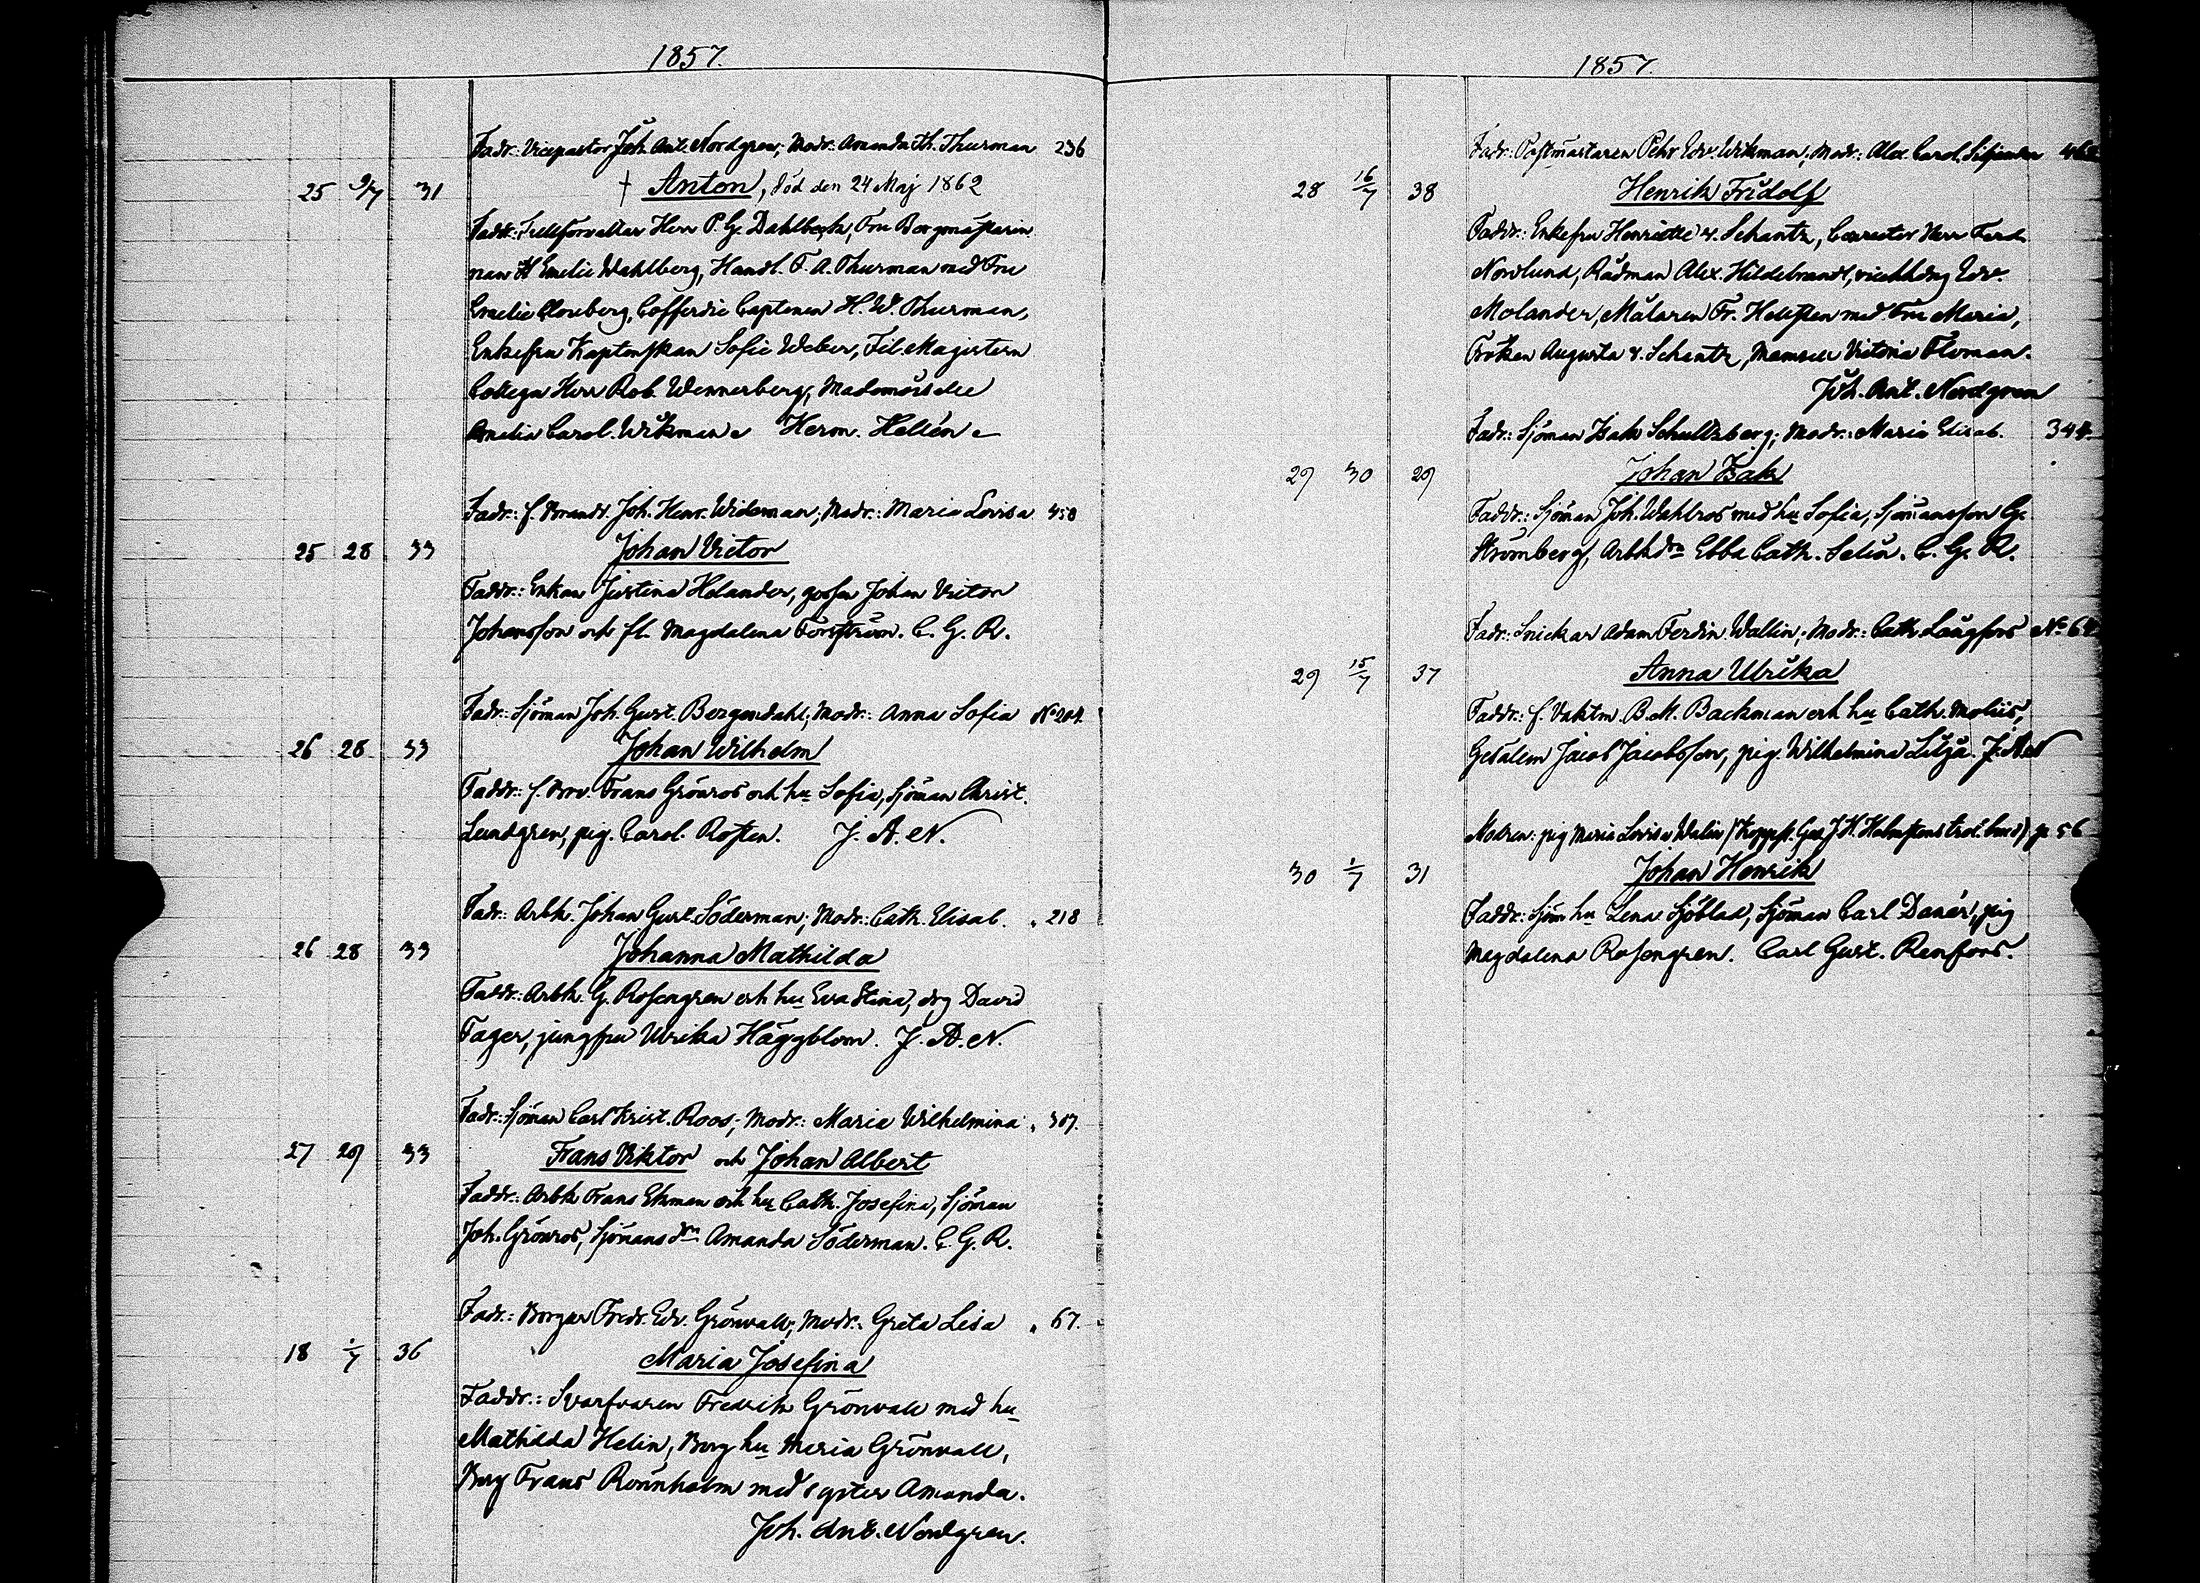 1857.
Fadr: Vicepastor Joh. Ant. Nordgren; Modr: Amanda Th. Thurman 236
25 9/7 31 † Anton, död den 24 Maj 1862
Faddr: Herr P. G. Dahlbeck, Fru Borgmästarin
nan H Emelie Wahlberg, Handl. F. A. Thurman med Fru
Emelie Clouberg, Cofferdie Captenen H. W. Thurman,
Enkefru Kaptenskan Sofie Weber, Fil. Magistern
Collega Herr Rob. Wennerberg, Mademoiselle
Amelia Carol. Wikman. Herm. Hellén.
Fadr: f. Brandv. Joh. Henr. Wideman; Modr: Maria Lovisa 450
25 28 33 Johan Victor
Faddr: Enkan Justina Helander, gossen Johan Victor
Johansson och fl. Magdalena Forsström. C. G. R.
Fadr: Sjöman Joh. Gust. Bergendahl; Modr: Anna Sofia No 204.
26 28 33 Johan Wilhelm
Faddr: f. Frans Grönros och hu Sofia, Sjöman Christ.
Lundgren, pig. Carol. Rosten. J. A. N.
Fadr: Arbk. Johan Gust. Söderman; Modr: Cath. Elisab. " 218
26 28 33 Johanna Mathilda
Faddr: Arbk. G. Rosengren och hu Eva Stina, drg David
Fager, jungfru Ulrika Häggblom. J. A. N.
Fadr: Sjöman Carl Krist. Roos; Modr: Maria Wilhelmina " 307.
27 29 33 Frans Viktor och Johan Albert
Faddr: Arbk Frans Ekman och hu Cath. Josefina, Sjöman
Joh. Grönros, Sjömans drn Amanda Söderman. C. G. R.
Fadr: Borgar Fredr. Edv. Grönvall; Modr: Greta Lisa " 67.
18 1/7 36 Maria Josefina
Faddr: Svarfvaren Fredrik Grönvall med hu
Mathilda Helin, Borg hu Maria Grönvall,
Borg Frans Rönnholm med syster Amanda.
Joh. Ant. Nordgren.
1857.
Fadr: Postmästaren Pehr Edv. Wikman; Modr: Alex. Carol.
28 16/7 38 Henrik Fridolf
Faddr: Enkefru Henriette v. Schantz, Conrector Herr Ferd.
Nordlund, Rådman Alex. Hildebrandt, Edv.
Molander, Målaren Fr. Hellsten med Fru Maria,
Fröken Augusta v. Schantz, Mamsell Victoria Floman.
Joh. Ant. Nordgren
Fadr: Sjöman Isak Schultzberg; Modr: Maria Elisab. 344.
29 30 29 Johan Isak
Faddr: Sjöman Joh. Wahlros med hu Sofia, Sjömansson G.
Strömberg, Arbkdrn Ebba Cath. Selin. C. G. R.
Fadr: Snickar Adam Ferdin. Wallin; Modr: Cath. Långfors No 64
29 15/7 37 Anna Ulrika
Faddr: f. Vaktm. B. M. Backman och hu Cath. Moliis,
Gesälen Jacob Jacobsson, pig. Wilhelmina Lilja. J. A. N
Modren: pig Maria Lovisa Walin p. 56
30 1/7 31 Johan Henrik
Faddr: Sjöm hu Lena Sjöblad, Sjöman Carl Danér, pig
Magdalena Rosengren. Carl Gust. Renfors.